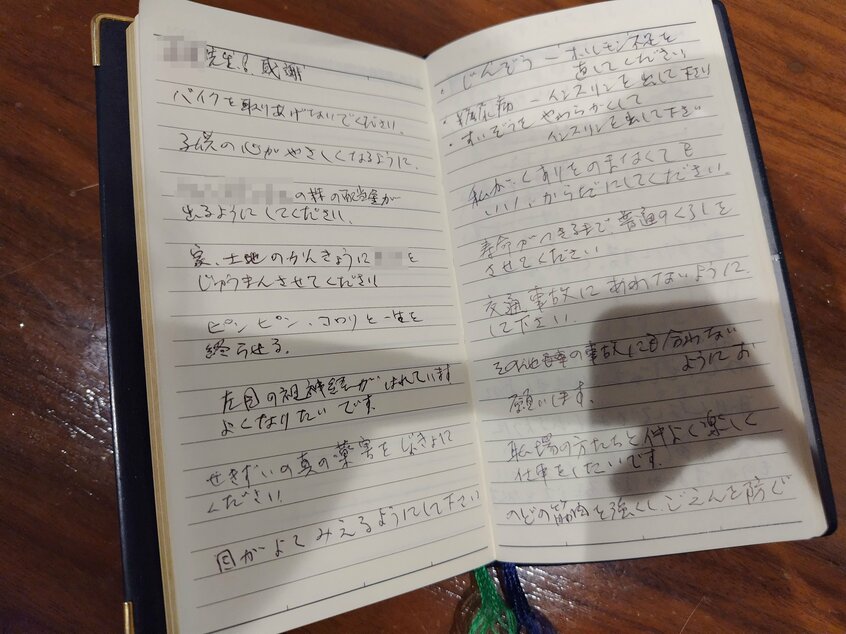 先生!、感謝
バイクを取りあげないでください。
子供の心がやさしくなるように、
の株の配当金が
出るようにしてください。
家、土地のかんきょうに を
じゅうまんさせてください
ピンピン、コロリと一生を
終らせる。
左目の視神経がはれています
よくなりたいです。
せきずいの真の薬害をじょきょに
ください
目がよくみえるようにして下さい
・じんぞう ー ホルモン不足を
直してください
・糖尿病 ー インスリンを出して下さい
・すいぞうをやわらかくして
インスリンを出して下さい
私が、くすりをのまなくても
いい、からだにしてください。
寿命がつきるまで普通のくらしを
させてください
交通事故にあわないように、
して下さい。
その他 の事故にも合わない
ようにお
願いします。
職場の方たちと仲よく楽しく
仕事をしたいです。
のどの筋肉を強くし、ごえんを防ぐ